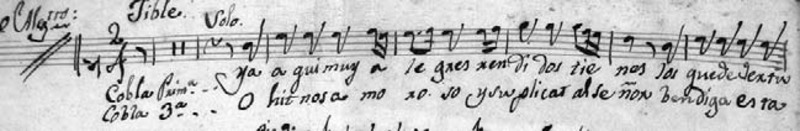 Tible. Solo.
Cobla Prim.ª - - ya a qui muy a le gres ren di dos tie nos los que de dex tu
Cobla 3ª - - O hit nos a mo ro. so y suplicat al se ñor bendiga es ta